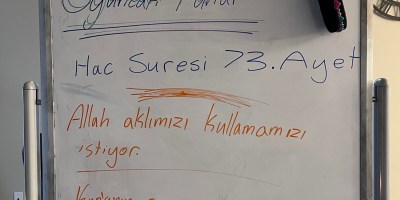 Hac Suresi 73. Ayet
Allah aklımızı kullanmamızı
istiyor.